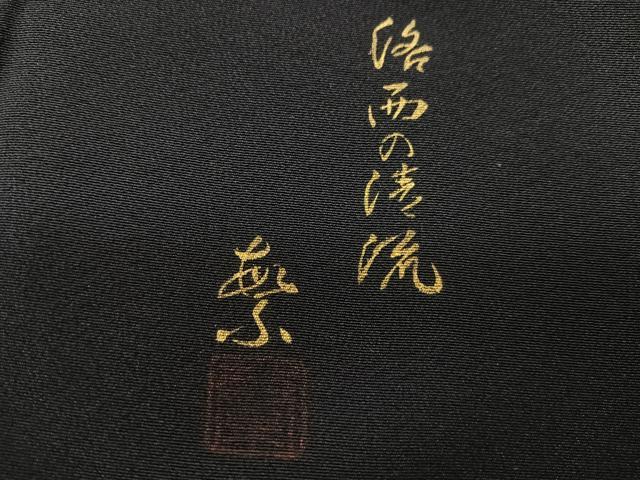 洛西の清流
繁